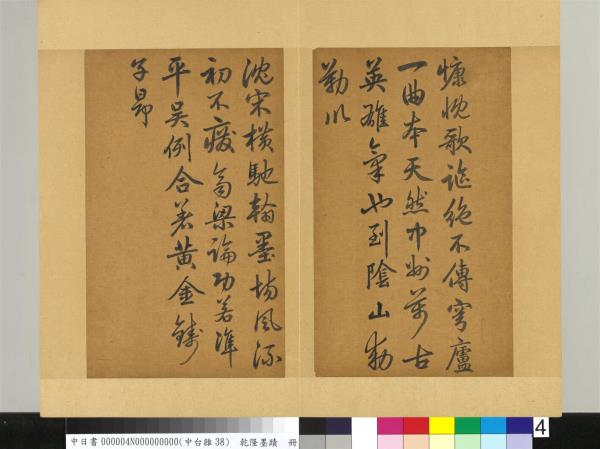 慷慨歌謠絕不傳穹廬
一曲本天然中州萬古
英雄氣也到陰山勅
勒川
沈宋橫馳翰墨場風流
初不廢齊梁論功若準
平吳例合著黃金鑄
子昂
中日書 000004N000000000(中台雜38) 乾隆墨蹟 冊
4